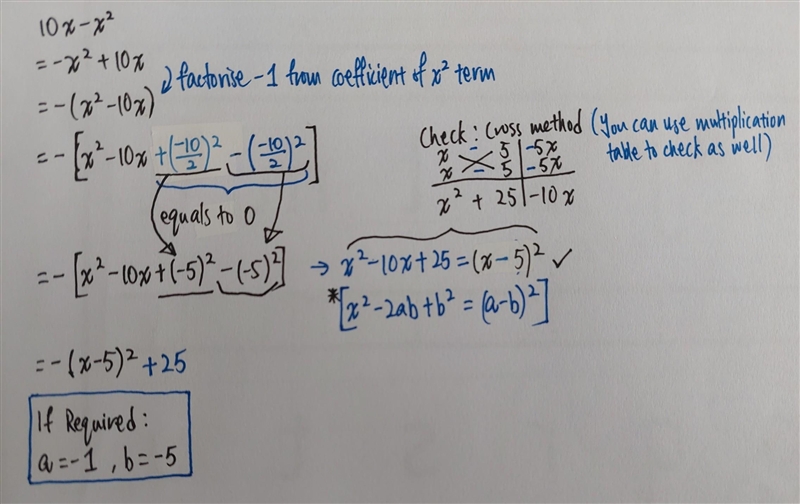 10x - x²
= -x² + 10x
= -(x² - 10x)
factorise -1 from coefficient of x² term
= -[x² - 10x + (-10/2)² - (-10/2)²]
equals to 0
Check: Cross method (You can use multiplication
table to check as well)
x - 5 | -5x
x - 5 | -5x
x² + 25 | -10x
= -[x² - 10x + (-5)² - (-5)²] → x² - 10x + 25 = (x - 5)² ✓
*[x² - 2ab + b² = (a - b)²]
= -(x - 5)² + 25
If Required:
a = -1, b = -5